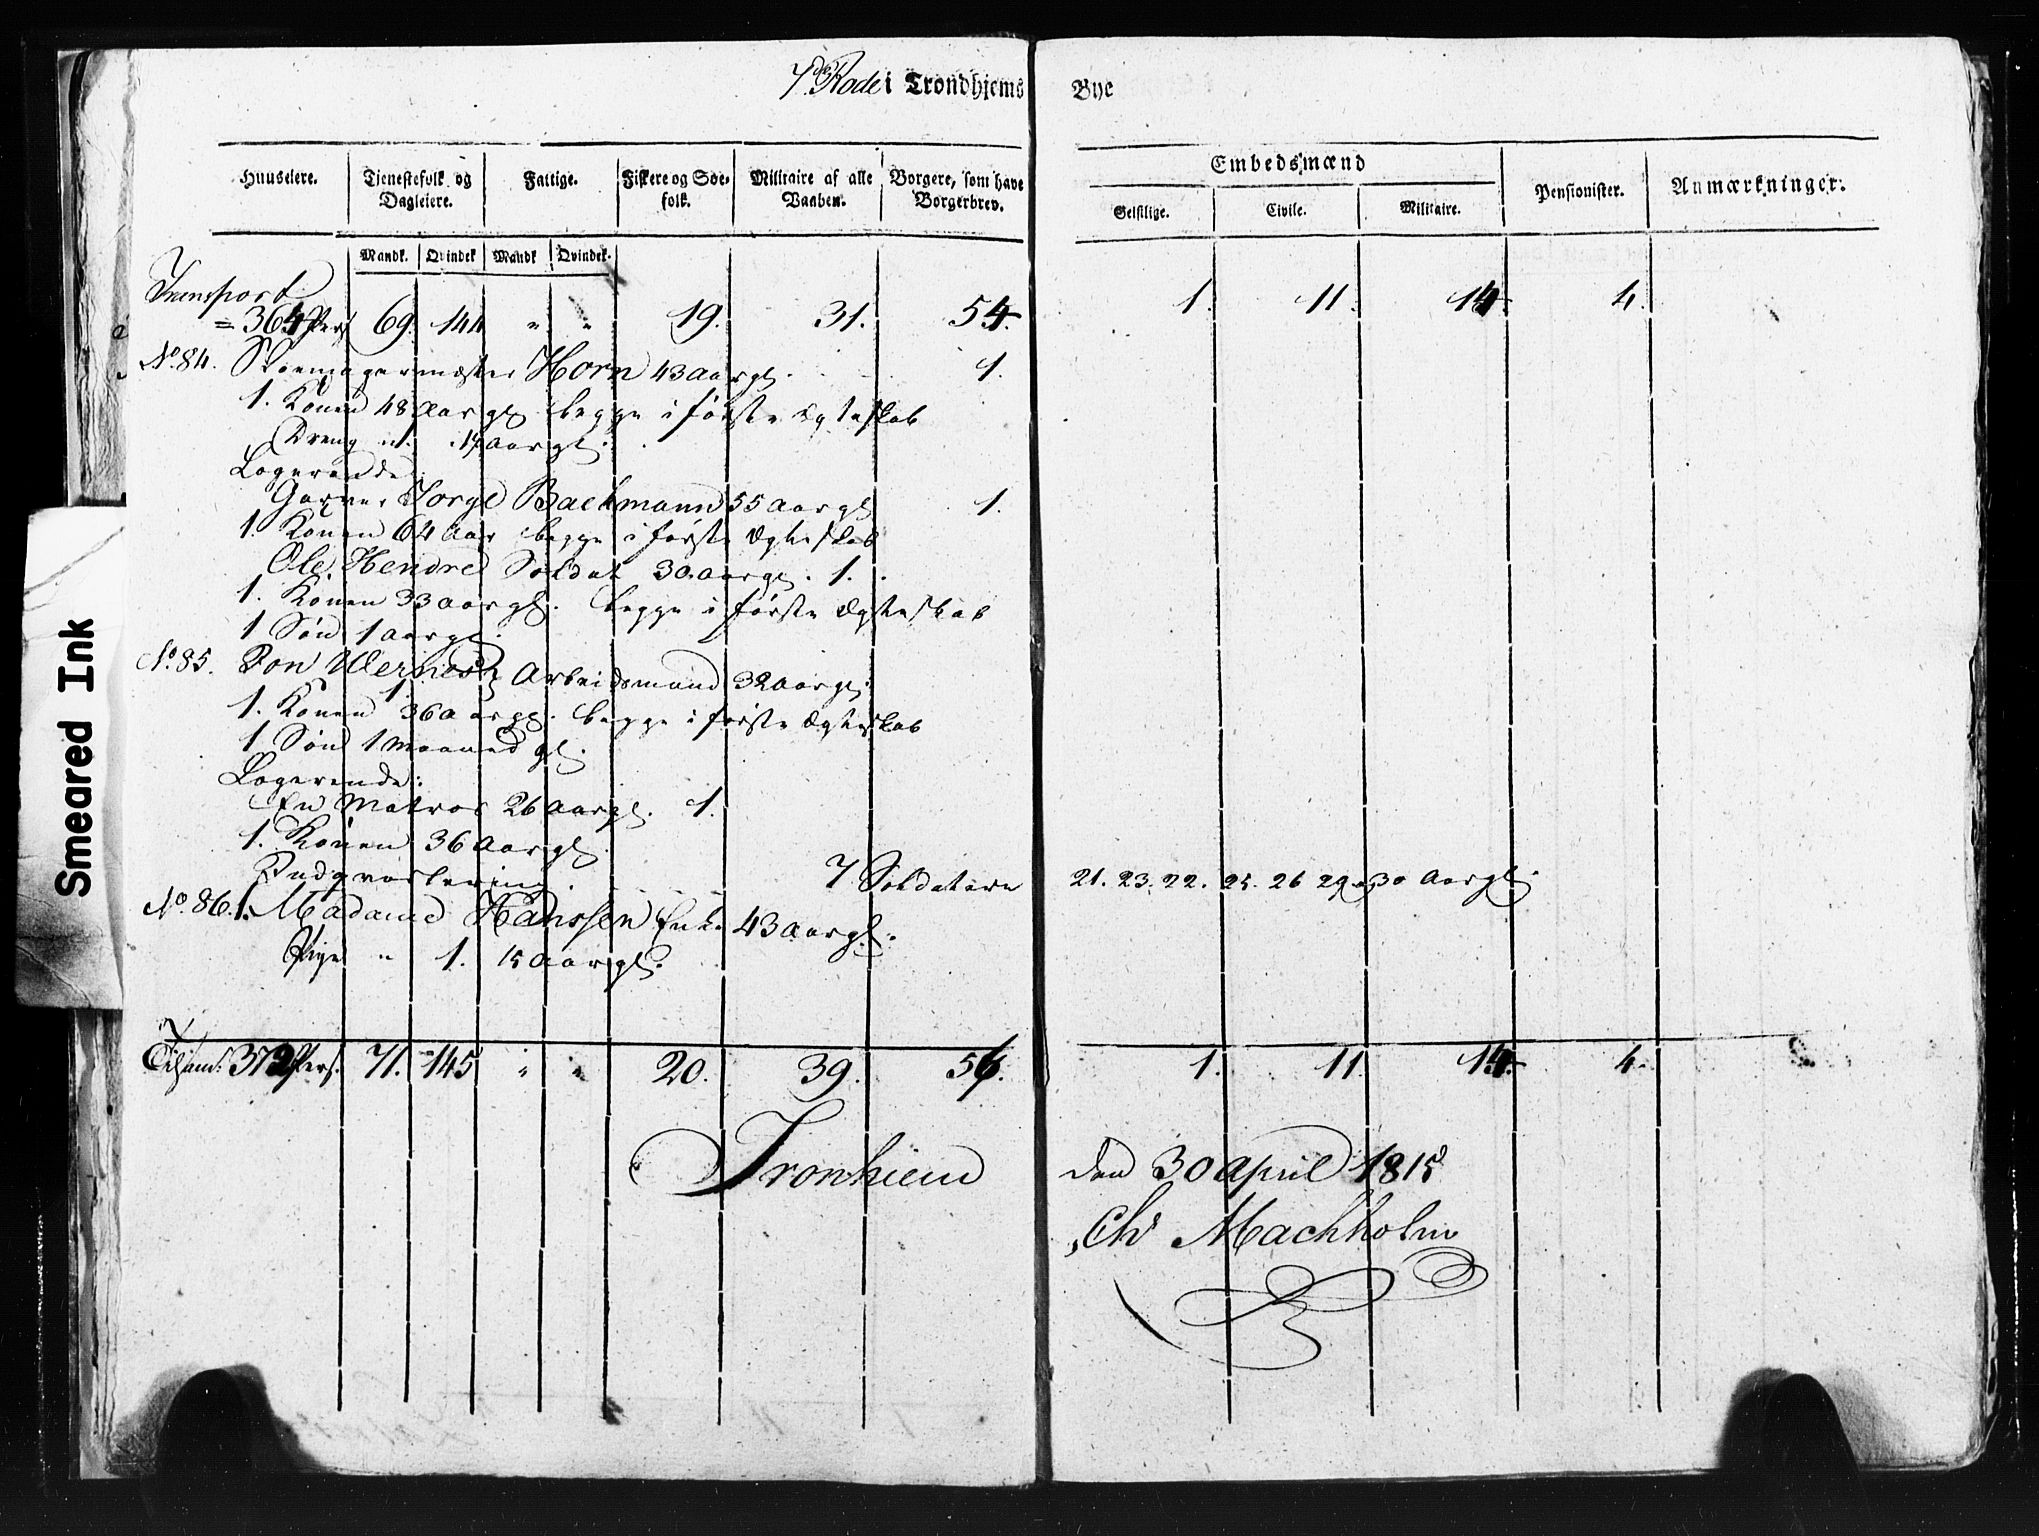 7de Rode i Trondhjems Bye
Huuseiere. Tjenestefolk og Dagleiere. Fattige. Fiskere og Søefolk. Militaire af alle Vaaben. Borgere, som have Borgerbrev. Embedsmænd Pensionister. Anmærkninger.
Geistlige. Civile. Militaire.
Mandk. Qvindek Mandk Qvindek.
Transport
= 364 Pers 69. 144 " " 19. 31. 54. 1. 11. 14. 4.
No. 84. Skoemagermester Horn 43 Aar gl. 1.
1. Konen 48 Aar gl begge i første Ægteskab
Dreng 1. 14 Aar gl.
Logerende
Garver Jørge Backmann 55 Aar gl 1.
1. Konen 64 Aar begge i første Ægteskab
Ole Hendre Soldat 30 Aar gl. 1.
1. Konen 33 Aar gl. begge i første Ægteskab
1 Søn 1 Aar gl.
No. 85. Arbeidsmand 32 Aar gl.
1.
1. Konen 36 Aar gl. begge i første Ægteskab
1 Søn 1 Maaned gl.
Logerende:
En Matros 26 Aar gl. 1.
1. Konen 36 Aar gl
Indqvartering 7 Soldatere 21. 23. 22. 25. 26 29 30 Aar gl.
No. 86. 1. Madame Hanssen Enke 43 Aar gl.
Pige " 1. 15 Aar gl.
Tilsam: 372 Pers. 71. 145 " " 20. 39. 56. 1. 11. 14. 4.
Tronhiem den 30 April 1815
Ch Machholm
Smeared Ink